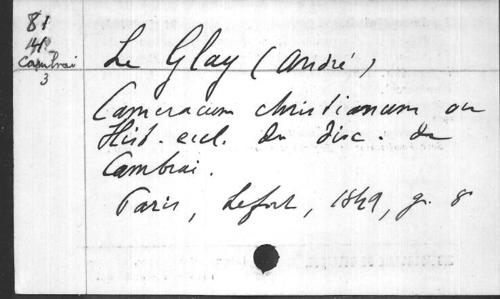 81
149
Cambrai
3
Le Glay (André)
Cameracum christianum ou
Hist. eccl. du disc. de
Cambrai.
Paris, Lefort, 1849, gr. 8